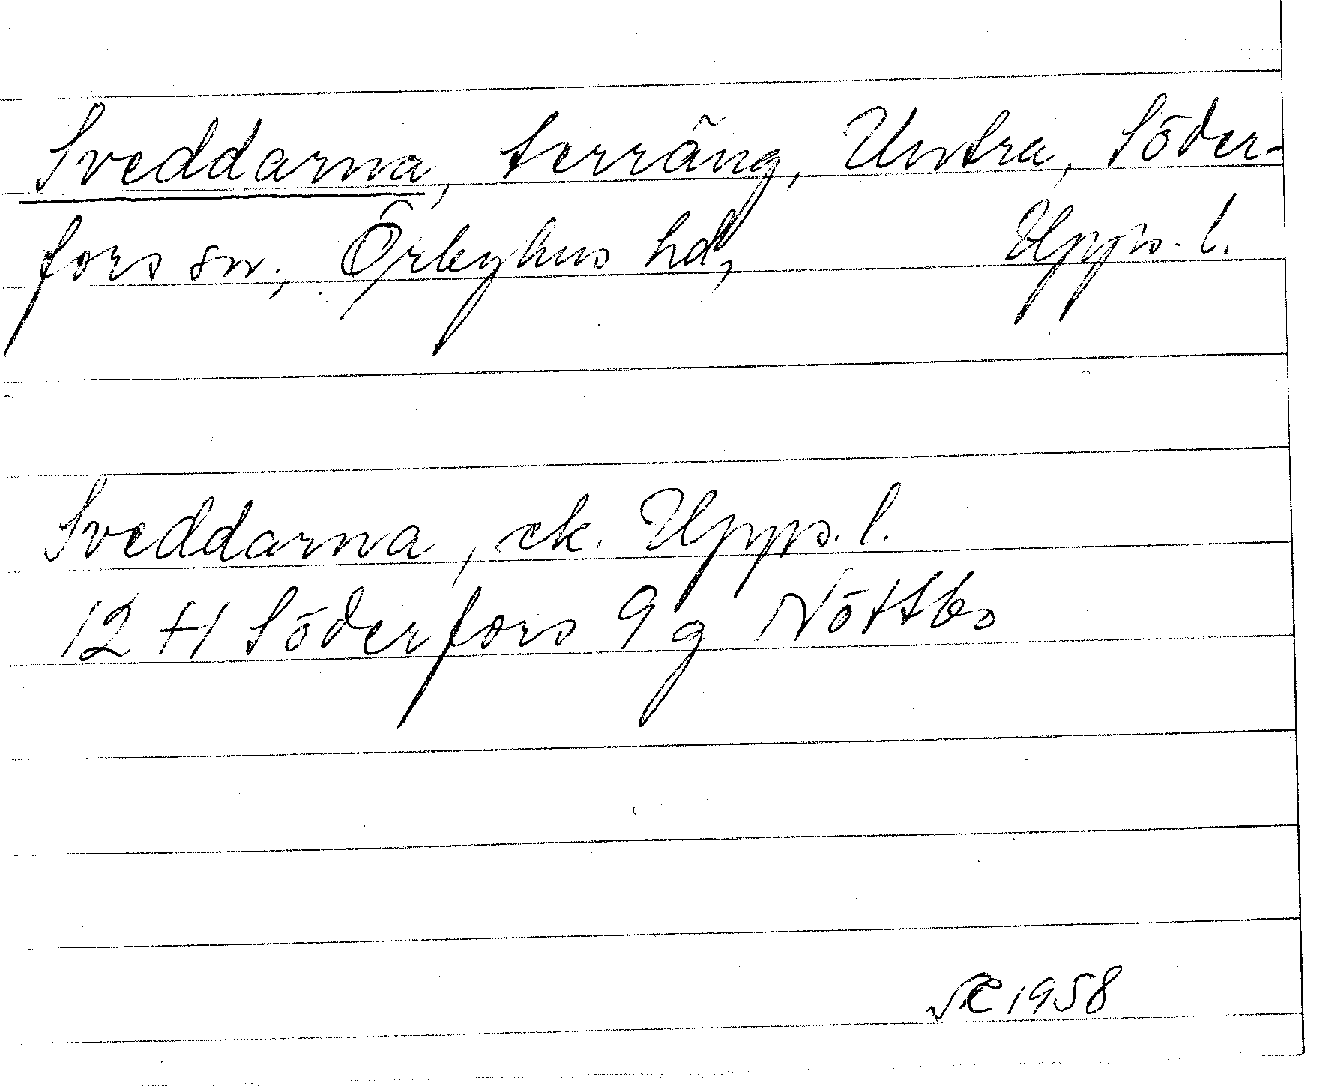 Sveddarna, terräng, Untra, Söder-
fors sn., Örbyhus hd, Upps. l.
Sveddarna, ek. Upps. l.
12 H Söderfors 9 g Nöttbo
1958